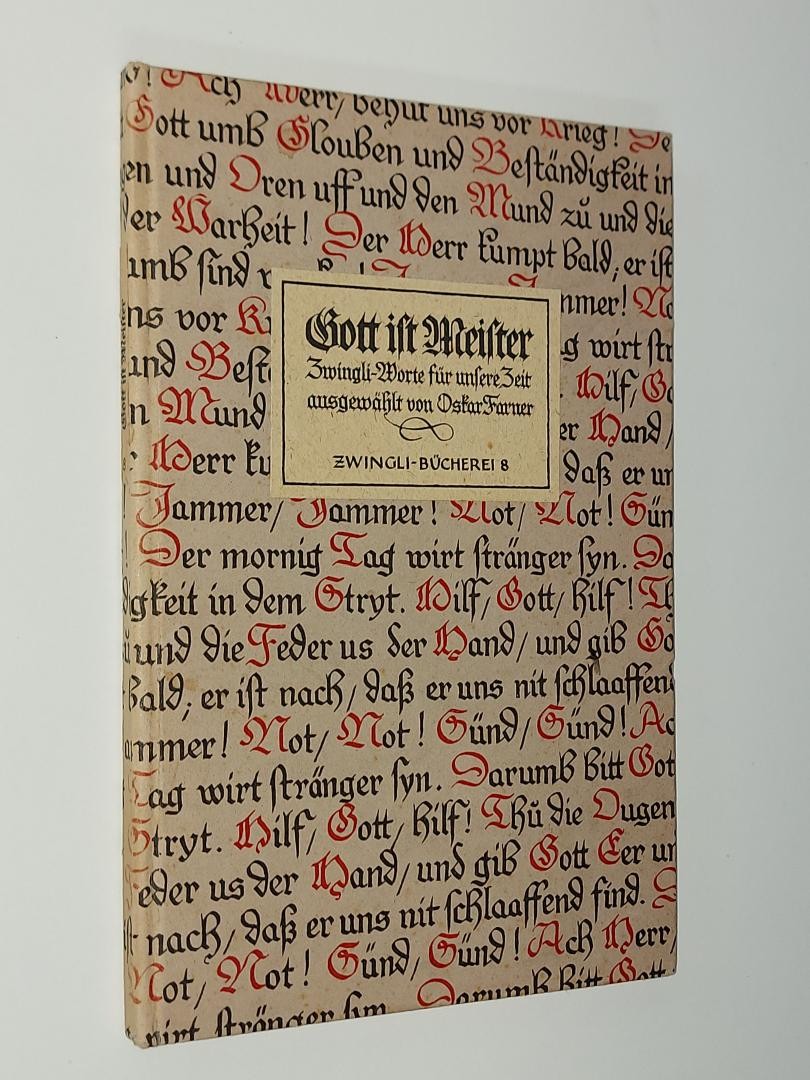 Ach Herr, behüt uns vor Krieg! De
Gott umb Glouben und Beständigkeit in
en und Oren uff und den Mund zů und die
er Warheit! Der Herr kumpt bald, er ist
umb sind
nmer! No
ns vor
g wirt str
und
Hilf, Go
n Mund
er Hand,
Herr
daß er un
Gott ist Meister
Zwingli-Worte für unsere Zeit
ausgewählt von Oskar Farner
ZWINGLI-BÜCHEREI 8
Jammer, Jammer! Not, Not! Sün
Der mornig Tag wirt stränger syn. Da
gkeit in dem Stryt. Hilf, Gott, hilf! Th
und die Feder us der Hand, und gib Go
bald, er ist nach, daß er uns nit schlaaffen
ammer! Not, Not! Sünd, Sünd! Ac
Tag wirt stränger syn. Darumb bitt Got
Stryt. Hilf, Gott, hilf! Thů die Ougen
Feder us der Hand, und gib Gott Eer un
nach, daß er uns nit schlaaffend find. D
Not, Not! Sünd, Sünd! Ach Herr,
wirt stränger syn. Darumb bitt Gott